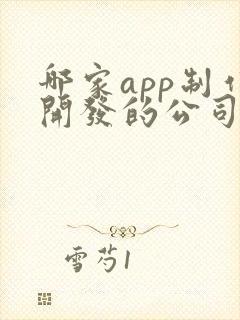 哪家app制作
開發的公司
雪芍1